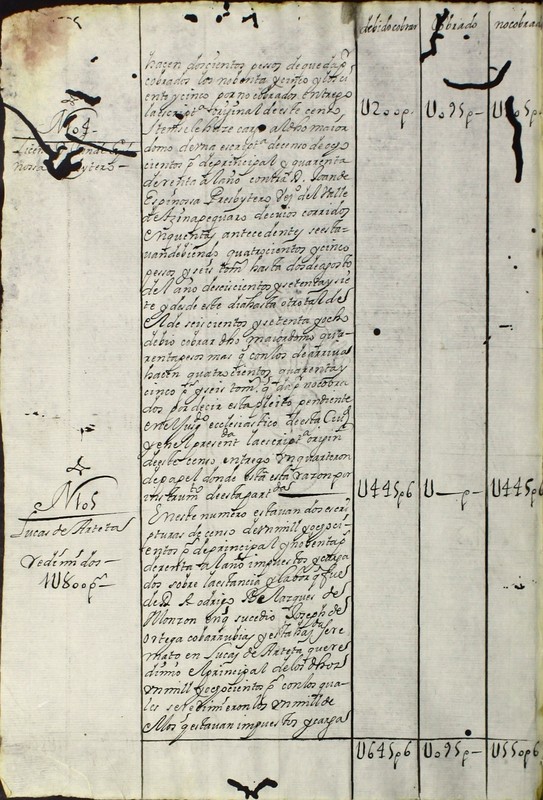 debido cobrar cobrado no cobrado
hacen doscientos pesos de que da p
cobrados los nobenta y cinco y los ci
ento y cinco por no cobrados entrego
la script.ª original de este censo
U200p. U095p U105p
N104
Presbytero
Yten se le haze cargo al dho maior
domo de una escript.ª de censo de ocho
cientos p.s de principal y quarenta
de renta al año contra D. Joan de
Espinossa Presbytero Vez.º del Valle
de Azinapequaro de cuios corridos
en quenta antecedente se esta
uan debiendo quatrocientos y cinco
pesos y seis tom.s hasta dos de agosto
del año de seiscientos y setenta y sie
te y desde este dia hasta otro tal del
de seiscientos y setenta y ocho
debio cobrar dho maiordomo qua
renta pesos mas q con los de arriua
hacen quatrocientos quarenta y
cinco p.s y seis tom.s q da por no cobra
dos por decir esta pleito pendiente
en el Juzg.do ecclesiastico de esta Ciu.d
y en el present la script.ª origin.l
de este censo entrego un quarteron
de papel donde esta razon por
instrum.to de esta partida
U445p6 U p U445p6
N105
Lucas de Arteta
redimidos
1U800p.s
En este numero estauan dos escri
pturas de censo de un mill y ochoci
entos p.s de principal y nobenta p.s
de renta al año impuestos y carga
dos sobre la estancia y labor q fue
de D. Rodrigo Marques de
Monzon en q sucedio Joseph de
Ortega cobarrubias y esta haz.da se re
mato en Lucas de Arteta que re
dimio el principal de los dhos
un mill y ochocientos p.s con los qua
les se redimieron los un mill de
ellos q estauan impuestos y carga
U645p6 U095p U550p6